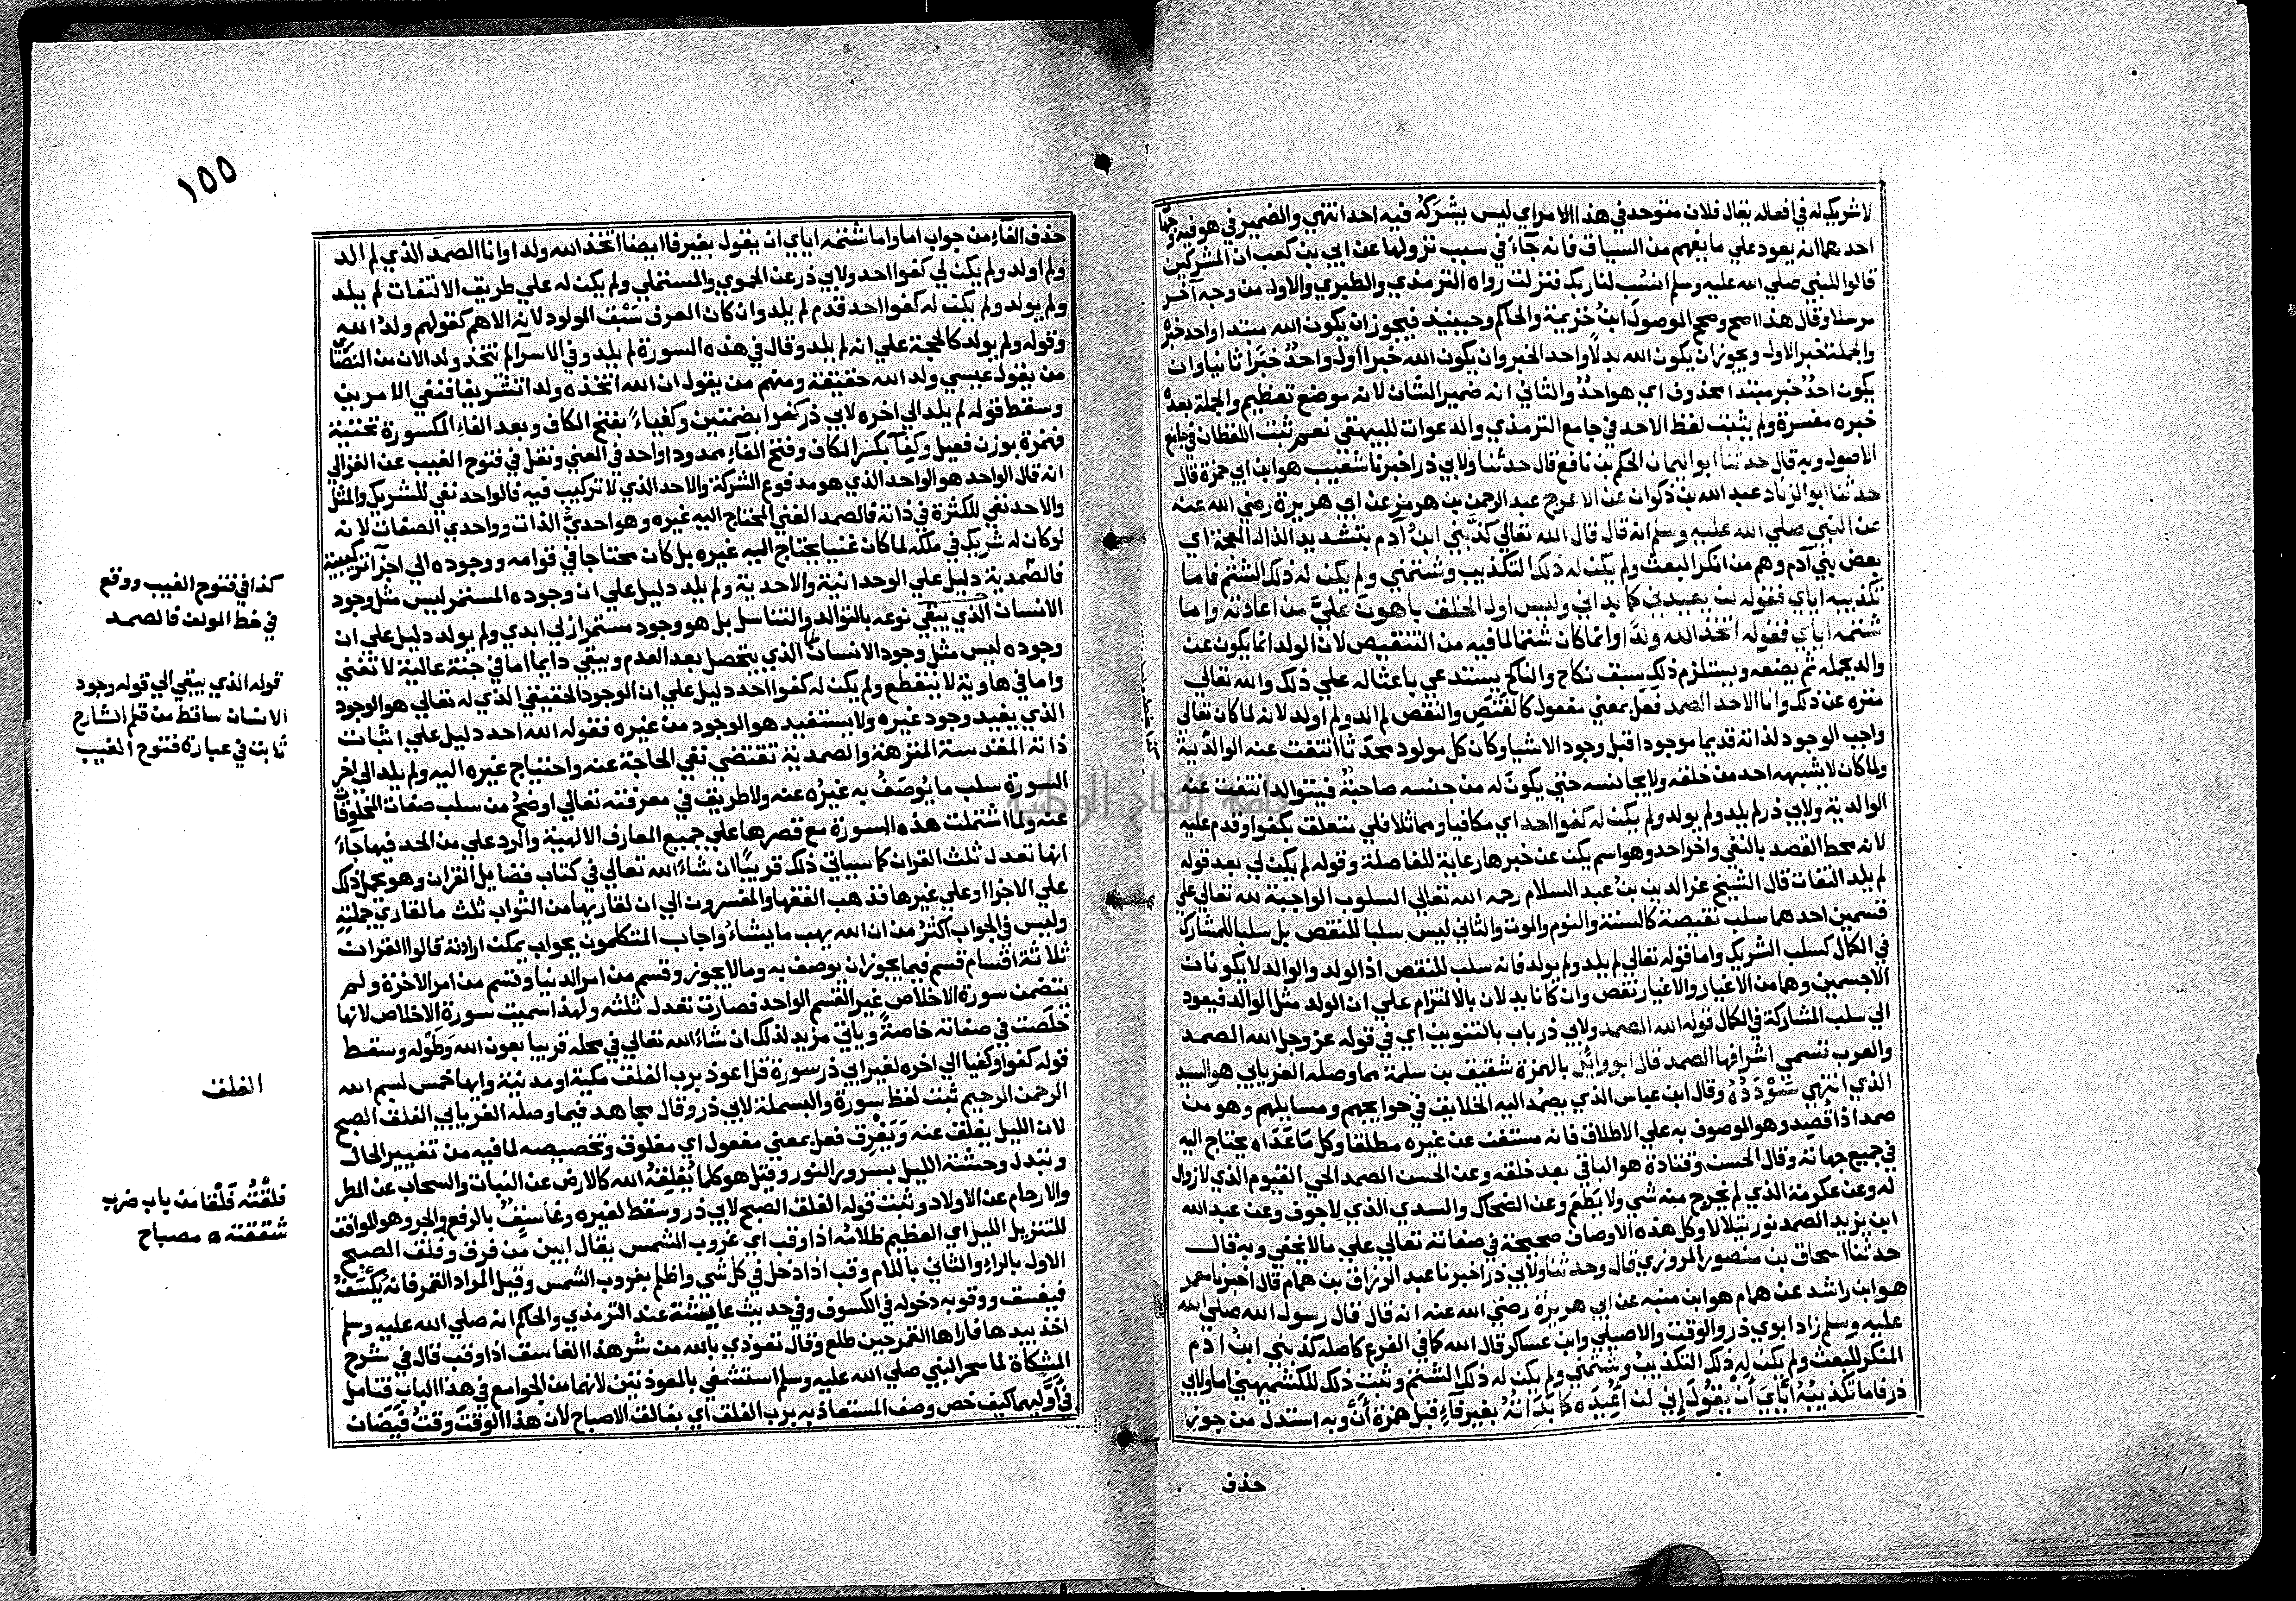 لا شريك له في افعاله يقال فلان متوحد في هذا الامر اي ليس يشركه فيه احد انتهي والضمير في هو فيه وجهان
احدهما انه يعود علي ما يفهم من السياق فانه جآء في سبب نزولها عن ابي بن كعب ان المشركين
قالوا للنبي صلي الله عليه وسلم انسُب لنا ربك فنزلت رواه الترمذي والطبري والاول من وجه آخر
مرسلا وقال هذا اصح وصحح الموصولَ ابنُ خزيمة والحاكم وحينيذ فيجوز ان يكون الله مبتدا واحد خبره
والجملة خبر الاول ويجوز ان يكون الله بدلاً واحد الخبر وان يكون الله خبرا اول واحدٌ خبرًا ثانيا وان
يكون احدٌ خبر مبتدا محذوف اي هو احدٌ والثاني انه ضمير الشان لانه موضع تعظيم والجملة بعده
خبره مفسرة ولم يثبت لفظ الاحد في جامع الترمذي والدعوات للبيهقي نعم ثبت اللفظان في جامع
الاصول وبه قال حدثنا ابو اليمان الحكم بن نافع قال حدثنا ولابي ذر اخبرنا شعيب هو ابن ابي حمزة قال
حدثنا ابو الزناد عبد الله بن ذكوان عن الاعرج عبد الرحمن بن هرمز عن ابي هريرة رضي الله عنه
عن النبي صلي الله عليه وسلم انه قال قال الله تعالي كذّبني ابنُ آدم بتشديد الذال المعجمة اي
بعض بني آدم وهم من انكر البعث ولم يكن له ذلك التكذيب وشتمني ولم يكن له ذلك الشتم فاما
تكذيبه اياي فقوله لن يعيدني كما بداني وليس اول الخلق باهونَ عليَّ من اعادته واما
شتمه اياي فقوله اتخذ الله ولدًا وانما كان شتما لما فيه من التنقيص لان الولد انما يكون عن
والد يحمله ثم يضعه ويستلزم ذلك سبق نكاح والناكح يستدعي باعثا له علي ذلك والله تعالي
منزه عن ذلك وانا الاحد الصمد فَعَل بمعني مفعول كالقَنَص والنقص لم الد ولم اولد لانه لما كان تعالي
واجب الوجود لذاته قديما موجودا قبل وجود الاشيا وكان كل مولود محدَثًا انتفت عنه الوالدية
ولما كان لا يشبهه احد من خلقه ولا يجانسه حتي يكونَ له من جنسه صاحبةٌ فيتوالد انتفت عنه
الوالدية ولابي ذر لم يلد ولم يولد ولم يكن له كفوا احد اي مكافيا ومماثلا فلي متعلق بكفوا وقدم عليه
لانه محط القصد بالنفي واخر احد وهو اسم يكن عن خبرها رعاية للفاصلة وقوله لم يكن لي بعد قوله
لم يلد التفات قال الشيخ عز الدين بنُ عبد السلام رحمه الله تعالي السلوب الواجبة لله تعالي علي
قسمين احدهما سلب نقيصة كالسنة والنوم والموت والثاني ليس سلبا للنقص بل سلبا للمشارك
في الكمال كسلب الشريك واما قوله تعالي لم يلد ولم يولد فانه سلب للنقص اذ الولد والوالد لا يكونان
الا جسمين وهما من الاغيار والاغيار نقص وان كانا يدلان بالالتزام علي ان الولد مثل الوالد فيعود
الي سلب المشاركة في الكمال قوله الله الصمد ولابي ذر باب بالتنوين اي في قوله عز وجل الله الصمد
والعرب تسمي اشرافها الصمد قال ابو وائل بالهمزة شقيق بن سلمة مما وصله الفريابي هو السيد
الذي انتهي سُؤْدَدُهُ وقال ابن عباس الذي يصمُد اليه الخلايق في حوايجهم ومسايلهم وهو من
صمد اذا قصِد وهو الموصوف به علي الاطلاق فانه مستغن عن غيره مطلقا وكل ما عداه محتاج اليه
في جميع جهاته وقال الحسن وقتادة هو الباقي بعد خلقه وعن الحسن الصمد الحي القيوم الذي لا زوال
له وعن عكرمة الذي لم يخرج منه شي ولا يَطعَم وعن الضحاك والسدي الذي لا جوف وعن عبد الله
ابن يزيد الصمد نور يتلالا وكل هذه الاوصاف صحيحة في صفاته تعالي علي ما لا يخفي وبه قال
حدثنا اسحاق بن منصور المروزي قال وحدثنا ولابي ذر اخبرنا عبد الرزاق بن همام قال اخبرنا معمر
هو ابن راشد عن همام هو ابن منبه عن ابي هريرة رضي الله عنه انه قال قال رسول الله صلي الله
عليه وسلم زاد ابوي ذر والوقت والاصيلي وابن عساكر قال الله كما في الفرع كاصله كذبني ابنُ ادم
المنكر للبعث ولم يكن له ذلك التكذيبُ وشتمني ولم يكن له ذلك الشتم وثبت ذلك للكشميهني اما ولابي
ذر فاما تكذيبُهُ ايّايَ أنْ يقولَ إني لن أُعِيدَه كما بدأتُهُ بغير فآءٍ قبل همزة أنْ وبه استدل من جوز
حذف
١٥٥
حذف الفآءِ من جواب اما واما شتمه اياي ان يقول بغير فا ايضا اتخذ الله ولدا وانا الصمد الذي لم الد
ولم اولد ولم يكن لي كفوا احد ولابي ذر عن الحموي والمستملي ولم يكن له علي طريق الالتفات لم يلد
ولم يولد ولم يكن له كفوا احد قدم لم يلد وان كان العرف سَبْقَ المولود لانه الاهم كقولهم ولدُ الله
وقوله ولم يولد كالحجة علي انه لم يلد وقال في هذه السورة لم يلد وفي الاسرآ لم يتخذ ولدا لان من النصاري
من يقول عيسي ولد الله حقيقة ومنهم من يقول ان الله اتخذه ولدا تشريفا فنفي الامرين
وسقط قوله لم يلد الي اخره لابي ذر كفوا بضمتين وكفياءً بفتح الكاف وبعد الفاء المكسورة تحتية
فهمزة بوزن فعيل وكِفآ بكسر الكاف وفتح الفآء ممدودا واحد في المعني ونقل في فتوح الغيب عن الغزالي
انه قال الواحد هو الواحد الذي هو مدفوع الشركة والاحد الذي لا تركيب فيه فالواحد نفي للشريك والمثل
والاحد نفي للكثرة في ذاته فالصمد الغني المحتاج اليه غيره وهو احديُّ الذات وواحدي الصفات لانه
لو كان له شريك في ملكه لما كان غنيا يحتاج اليه غيره بل كان محتاجا في قوامه ووجوده الي اجزآء تركيبية
فالصَّمدية دليل علي الوحدانية والاحدية ولم يلد دليل علي ان وجوده المستمر ليس مثل وجود
الانسان الذي يبقي نوعه بالتوالد والتناسل بل هو وجود مستمر ازلي ابدي ولم يولد دليل علي ان
وجوده ليس مثل وجود الانسان الذي يتحصل بعد العدم ويبقي دايما اما في جنة عالية لا تفني
واما في هاوية لا ينقطع ولم يكن له كفوا احد دليل علي ان الوجود الحقيقي الذي له تعالي هو الوجود
الذي يفيد وجود غيره ولا يستفيد هو الوجود من غيره فقوله الله احد دليل علي اثبات
ذاته المقدسة المنزهة والصمدية تقتضي نفي الحاجة عنه واحتياج غيره اليه ولم يلد الي اخر
السورة سلب ما يُوصَفُ به غيرُه عنه ولا طريق في معرفته تعالي اوضحُ من سلب صفات المخلوقات
عنه ولما اشتملت هذه السورة مع قصرها علي جميع المعارف الالهية والرد علي من الحد فيها جآء
انها تعدل ثلث القران كما سياتي ذلك قريبًا ان شآء الله تعالي في كتاب فضايل القران وهو يحمل ذلك
علي الاجزا او علي غيرها فذهب الفقها والمفسرون الي ان لقاريها من الثواب ثلث ما لقاري جملته
وليس في الجواب اكثرُ من ان الله يهب ما يشاءُ واجاب المتكلمون بجواب يمكن ارادته قالوا القران
ثلاثة اقسام قسم فيما يجوز ان يوصف به وما لا يجوز وقسم من امر الدنيا وقسم من امر الاخرة ولم
يتضمن سورة الاخلاص غير القسم الواحد فصارت تعدل ثلثه ولهذا سميت سورة الاخلاص لانها
خلَصت في صفاته خاصةً وياتي مزيد لذلك ان شآء الله تعالي في محله قريبا بعون الله وطَوْله وسقط
قوله كفوا وكفيا الي اخره لغير ابي ذر سورة قل اعوذ برب الفلق مكية او مدنية وايها خمس بسم الله
الرحمن الرحيم ثبت لفظ سورة والبسملة لابي ذر وقال مجاهد فيما وصله الفريابي الفلق الصبح
لان الليل يفلق عنه ويَفْرِق فعل بمعني مفعول اي مفلوق وتخصيصه لما فيه من تغيير الحال
وتبدل وحشة الليل بسرور النور وقيل هو كلما يُفلِقُهُ الله كالارض عن النبات والسحاب عن المطر
والارحام عن الاولاد وثبت قوله الفلق الصبح لابي ذر وسقط لغيره وغاسقٌ بالرفع والجر وهو الموافق
للتنزيل الليل اي العظيم ظلامُه اذا وقب اي غروب الشمس يقال ابين من فرق وفلق الصبح
الاول بالراءِ والثاني باللام وقب اذا دخل في كل شي واظلم بغروب الشمس وقيل المراد القمر فانه يُكْسَفُ
فيغسق ووقوبه دخوله في الكسوف وفي حديث عايشة عند الترمذي والحاكم انه صلي الله عليه وسلم
اخذ بيدها فاراها القمر حين طلع وقال تعوذي بالله من شر هذا الغاسق اذا وقب قال في شرح
المشكاة لما سحر النبي صلي الله عليه وسلم استشفي بالمعوذتين لانهما من الجوامع في هذا الباب فتامل
في اوَّليهما كيف خص وصف المستعاذ به برب الفلق اي بفالق الاصباح لان هذا الوقتَ وقتُ فيضان
كذا في فتوح الغيب ووقع
في خط المولف فالصمد
قوله الذي يبقي الي قوله وجود
الانسان ساقط من قلم الشارح
ثابت في عبارة فتوح الغيب
الفلق
فلقْتُه فَلْقا من باب ضرب
شققته ه مصباح
جامعة النجاح الوطنية